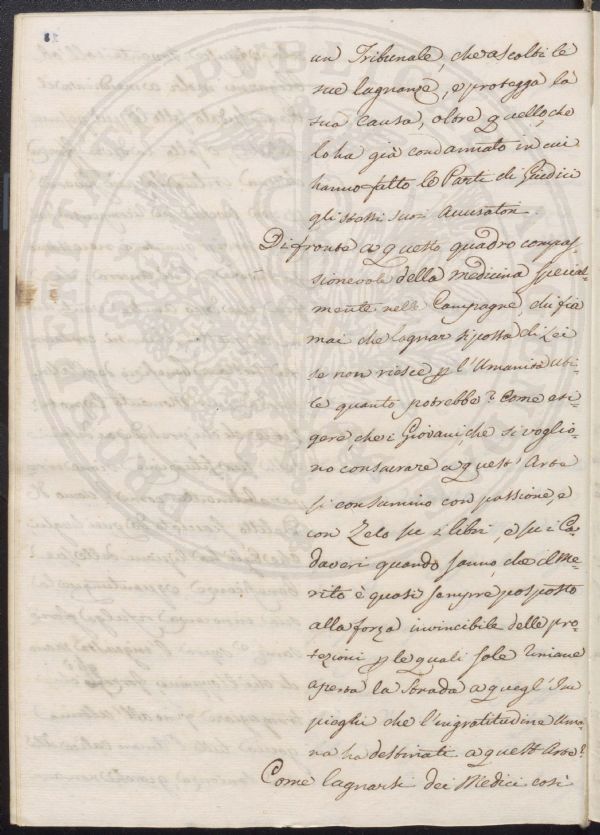 un Tribunale, che ascolti le
sue lagnanze, e protegga la
sua causa, oltre quello, che
lo ha già condannato in cui
hanno fatto le Parti di Giudici
gli stessi suoi Accusatori.
Di fronte a questo quadro compas-
sionevole della medicina special-
mente nelle Campagne, chi fia
mai che lagnar si possa di Lei
se non riesce p l'Umanità uti-
le quanto potrebbe? Come esi-
gere, che i Giovani, che si voglio-
no consacrare a quest'Arte
si consumino con passione, e
con Zelo su i libri, e su i Ca-
daveri quando sanno, che il Me-
rito è quasi sempre posposto
alla forza invincibile delle pro-
tezioni p le quali sole rimane
aperta la Strada a quegl'Im
pieghi che l'ingratitudine Uma-
na ha destinati a quest'Arte?
Come lagnarsi dei Medici così